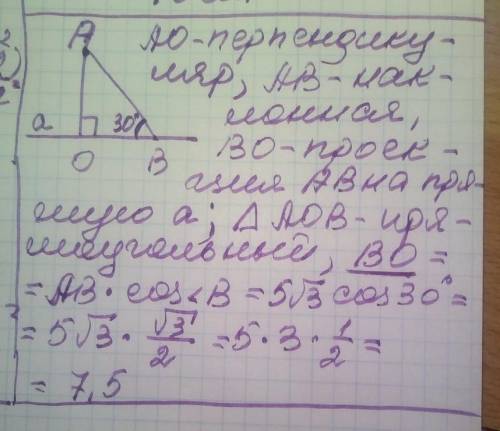 A
a
30°
O
B
АО-перпендику-
ляр, АВ-нак-
лонная,
ВО-проек-
ция АВ на пря-
мую а; △АОВ-пря-
моугольный, ВО =
= АВ · cos∠B = 5√3 cos30° =
= 5√3 · √3/2 = 5 · 3 · 1/2 =
= 7,5